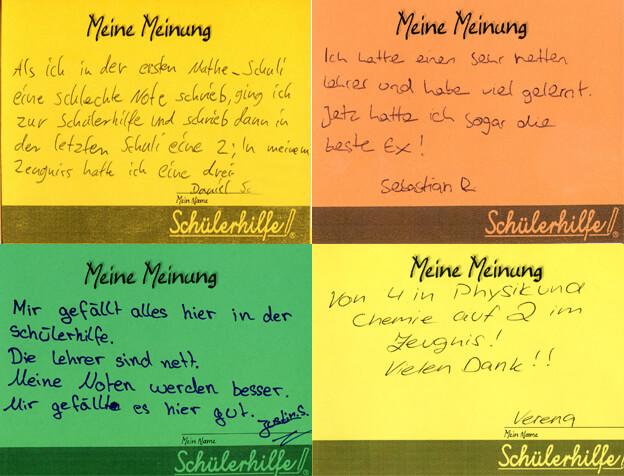 Meine Meinung
Als ich in der ersten Mathe-Schuli
eine schlechte Note schrieb, ging ich
zur Schülerhilfe und schrieb dann in
der letzten Schuli eine 2; In meinem
Zeugniss hatte ich eine drei
Daniel Sc
Mein Name
Schülerhilfe!
Meine Meinung
Ich hatte einen sehr netten
Lehrer und habe viel gelernt.
Jetz hatte ich sogar die
beste Ex!
Sebastian R
Schülerhilfe!
Meine Meinung
Mir gefällt alles hier in der
Schülerhilfe.
Die Lehrer sind nett.
Meine Noten werden besser.
Mir gefällt es hier gut.
Mein Name
Schülerhilfe!
Meine Meinung
Von 4 in Physik und
Chemie auf 2 im
Zeugnis!
Vielen Dank!!
Verena
Mein Name
Schülerhilfe!